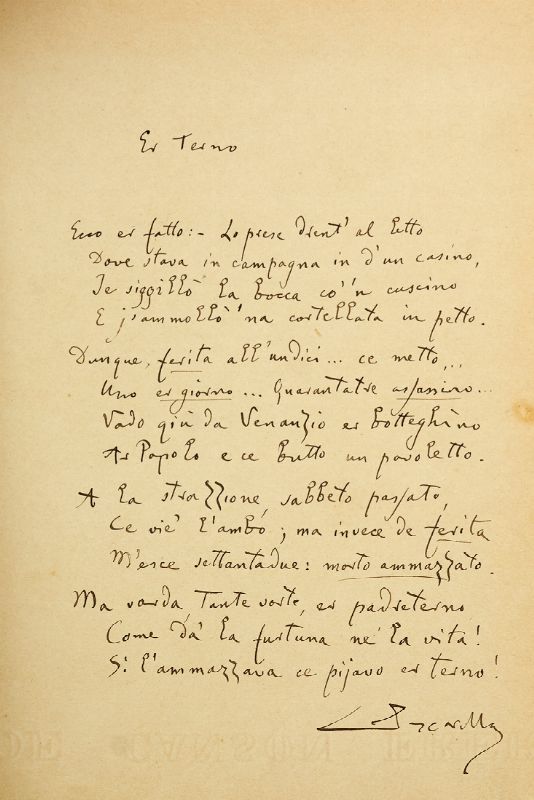 Er terno
Ecco er fatto: - Lo prese drent' al letto
Dove stava in campagna in d'un casino,
Je siggillò la bocca co' 'n cuscino
E j'ammollò 'na cortellata in petto.
Dunque, ferita all'undici... ce metto...
Uno er giorno... Quarantatre assassino...
Vado qui da Venanzio er botteghino
Ar Popolo e ce butto un pavoletto.
A la strazzione, sabbeto passato,
Ce viè l'ambo; ma invece de ferita
M'esce settantadue: morto ammazzato.
Ma varda, tante vorte, er padreterno
Come dà la furtuna ne la vita!
Si l'ammazzava ce pijavo er terno!
CPascarella